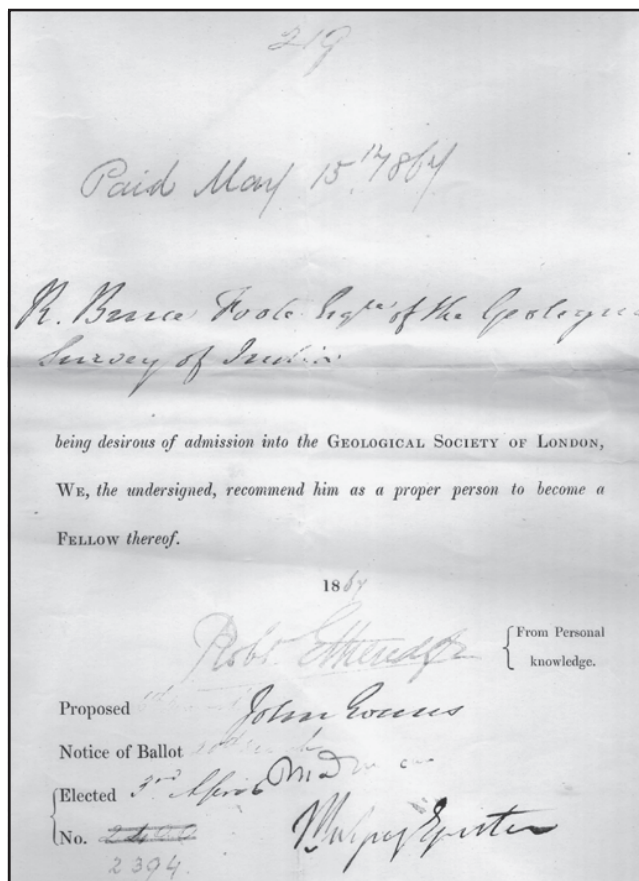 219
Paid May 15th 1867
R. Bruce Foote Esqre of the Geologica
Survey of India
being desirous of admission into the GEOLOGICAL SOCIETY OF LONDON,
WE, the undersigned, recommend him as a proper person to become a
FELLOW thereof.
1867
Robt Etheridge
From Personal
knowledge.
Proposed
John Evans
Notice of Ballot
Elected 3rd April
No. 2400
2394.